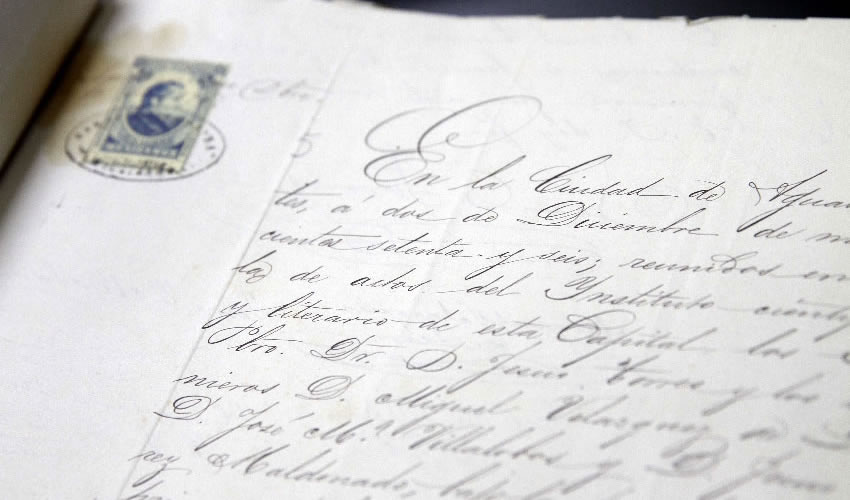 En la Ciudad de Agua
tes, á dos de Diciembre de m
cientos setenta y seis; reunidos en
la de actos del Instituto cientí
y literario de esta Capital los
bro. Dr. D. Jesus Torres y los
nieros D. Miguel Velazquez
D. José M.ª Villalobos y D. Jesus
rey Maldonado, bajo